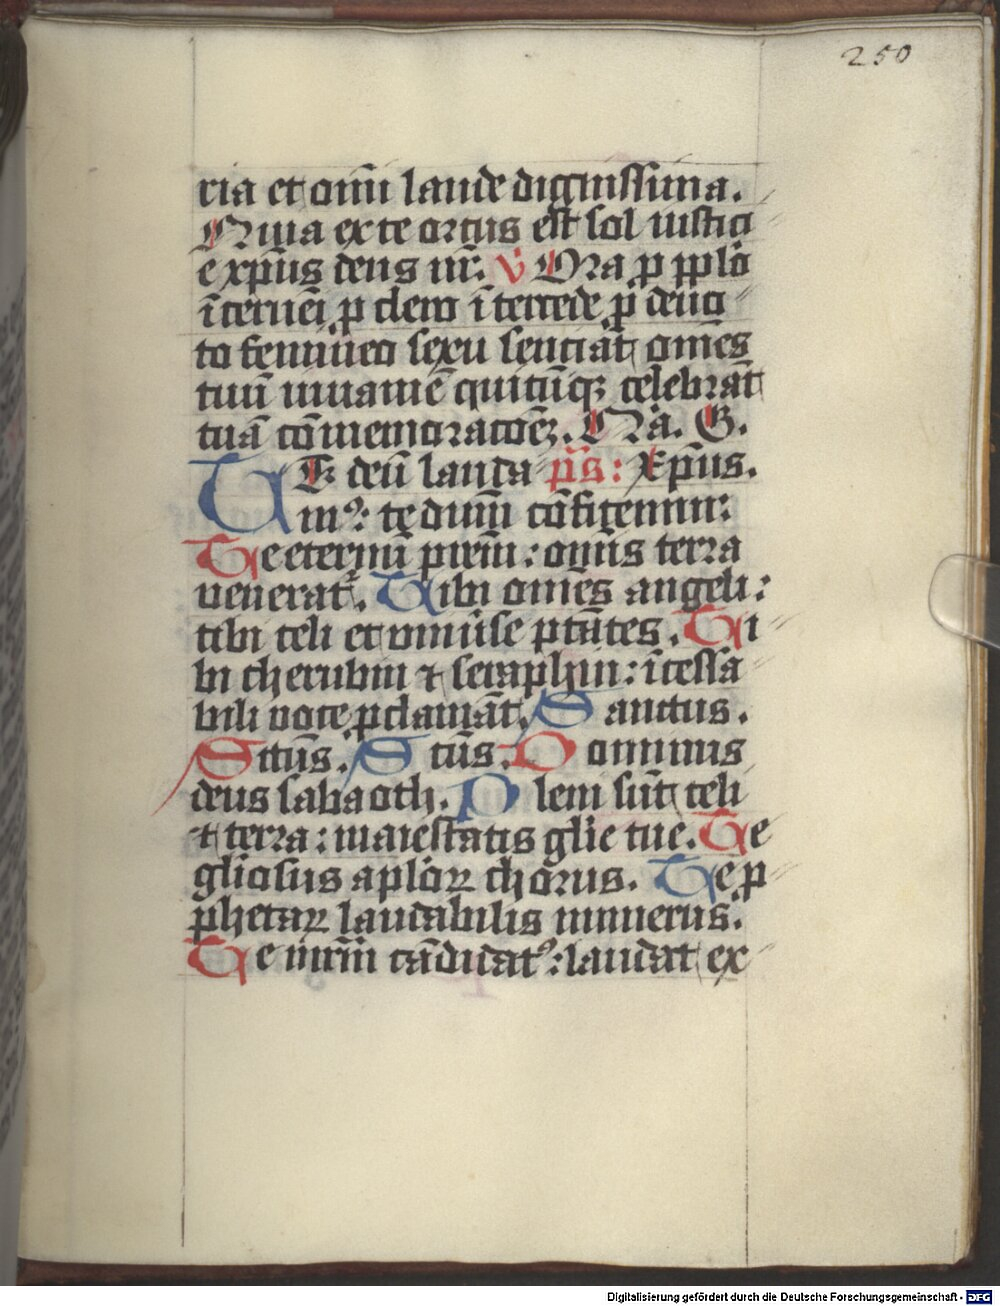 250
ria et om̄i laude dignissima.
Quia ex te ortus est sol iusticı
e xp̄us deus nr̄. v̄ Ora ꝓ pplo
īterueı̄ ꝓ clero ītercede ꝓ deuo
to femineo sexu senciāt om̄es
tuū iuuamē quicūqꝫ celebrāt
tuā cōmemoracōeꝫ. Or̄a. G.
TE deū lauda p̄s: Xp̄us.
mꝰ: te dnm̄ cōfitemur:
Te eternū prēm: om̄is terra
venerat᷑. Tibi om̄es angeli:
tibi celi et vniūse ptātes. Ti
bi cherubin ⁊ seraphin: īcessa
bili voce ꝓclamāt. Sanctus.
Sctūs. Sctūs. Dominus
deus sabaoth. Pleni sūt celi
⁊ terra: maiestatis glīe tue. Te
glīosus aplōꝝ chorus. Te ꝓ
phetaꝝ laudabilis numerus.
Te mrm̄ cādidatꝰ: laudat ex
Digitalisierung gefördert durch die Deutsche Forschungsgemeinschaft - DFG